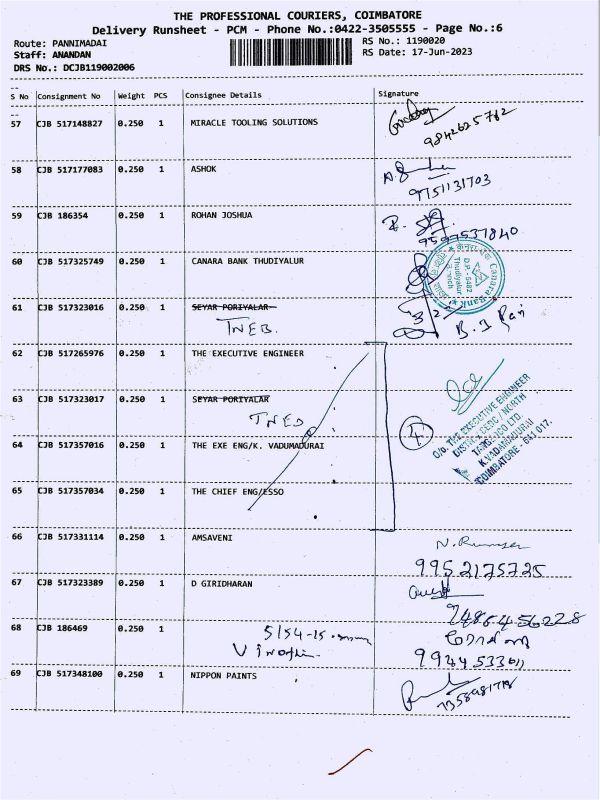 THE PROFESSIONAL COURIERS, COIMBATORE
Delivery Runsheet - PCM - Phone No.:0422-3505555 - Page No.:6
Route: PANNIMADAI RS No.: 1190020
Staff: ANANDAN RS Date: 17-Jun-2023
DRS No.: DCJB119002006
S No Consignment No Weight PCS Consignee Details Signature
57 CJB 517148827 0.250 1 MIRACLE TOOLING SOLUTIONS
9842625782
58 CJB 517177083 0.250 1 ASHOK
9751131703
59 CJB 186354 0.250 1 ROHAN JOSHUA
9597537840
60 CJB 517325749 0.250 1 CANARA BANK THUDIYALUR
Canara Bank
D.P.- 5482
Thudiyalur
Branch
61 CJB 517323016 0.250 1 SEYAR PORIYALAR
TNEB.
62 CJB 517265976 0.250 1 THE EXECUTIVE ENGINEER
63 CJB 517323017 0.250 1 SEYAR PORIYALAR
TNEB
4
O/o. THE EXECUTIVE ENGINEER
DISTN./CEDC / NORTH
TANGEDCO LTD.
K.VADAMADURAI
COIMBATORE - 641 017.
64 CJB 517357016 0.250 1 THE EXE ENG/K. VADUMADURAI
65 CJB 517357034 0.250 1 THE CHIEF ENG/ESSO
66 CJB 517331114 0.250 1 AMSAVENI
9952175725
67 CJB 517323389 0.250 1 D GIRIDHARAN
7486456228
68 CJB 186469 0.250 1
69 CJB 517348100 0.250 1 NIPPON PAINTS